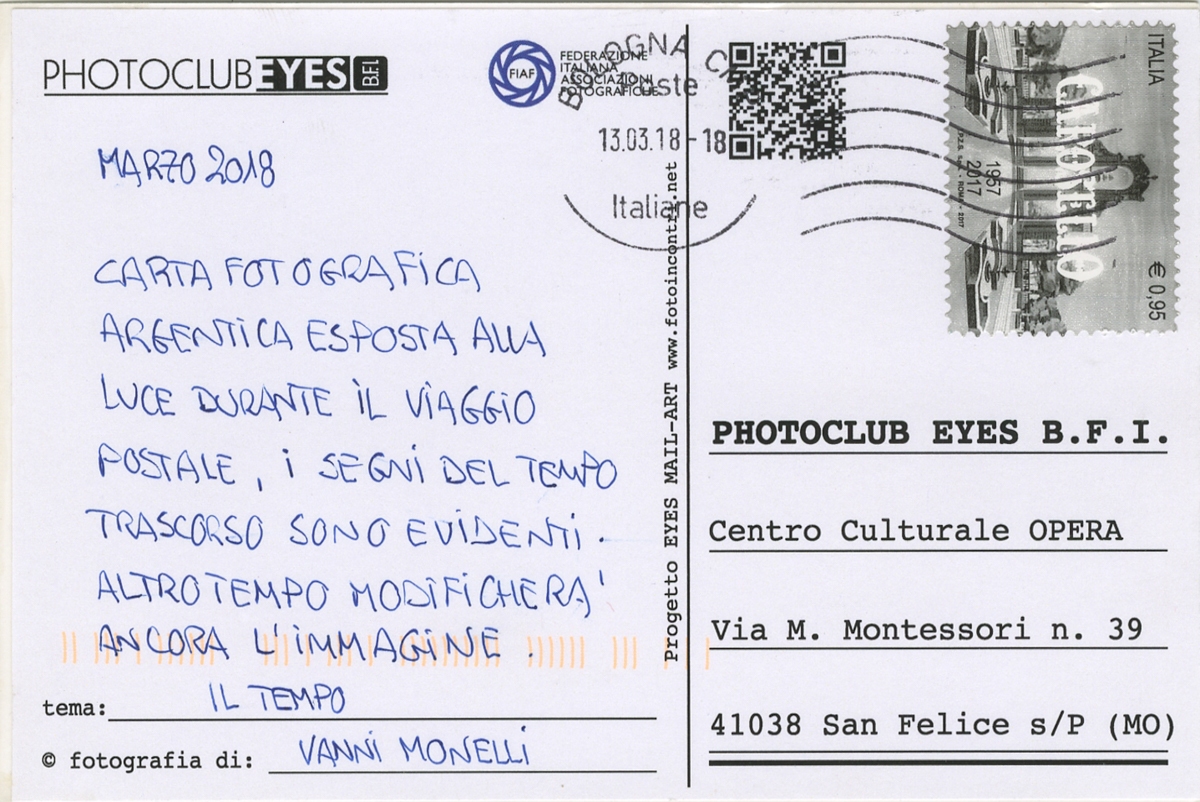 PHOTOCLUB EYES B.F.I.
FIAF
FEDERAZIONE
ITALIANA
ASSOCIAZIONI
FOTOGRAFICHE
BOLOGNA
Poste
13.03.18-18
Italiane
ITALIA
CAROSELLO
1957
2017
I.P.Z.S. S.p.A. - ROMA - 2017
€ 0,95
MARZO 2018
CARTA FOTOGRAFICA
ARGENTICA ESPOSTA ALLA
LUCE DURANTE IL VIAGGIO
POSTALE, I SEGNI DEL TEMPO
TRASCORSO SONO EVIDENTI.
ALTRO TEMPO MODIFICHERA'
ANCORA L'IMMAGINE.
tema: IL TEMPO
© fotografia di: VANNI MONELLI
Progetto EYES MAIL-ART www.fotoincontri.net
PHOTOCLUB EYES B.F.I.
Centro Culturale OPERA
Via M. Montessori n. 39
41038 San Felice s/P (MO)